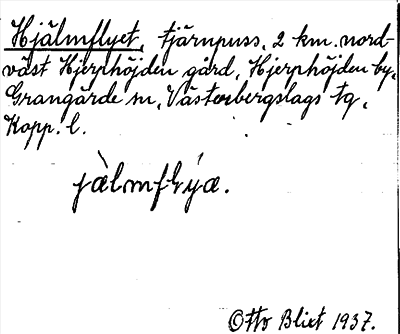 Hjälmflyet, tjärnpuss, 2 km. nord-
väst Hjerphöjden gård, Hjerphöjden by,
Grangärde sn, Västerbergslags tg,
Kopp. l.
jàlmflýa.
Otto Blixt 1937.